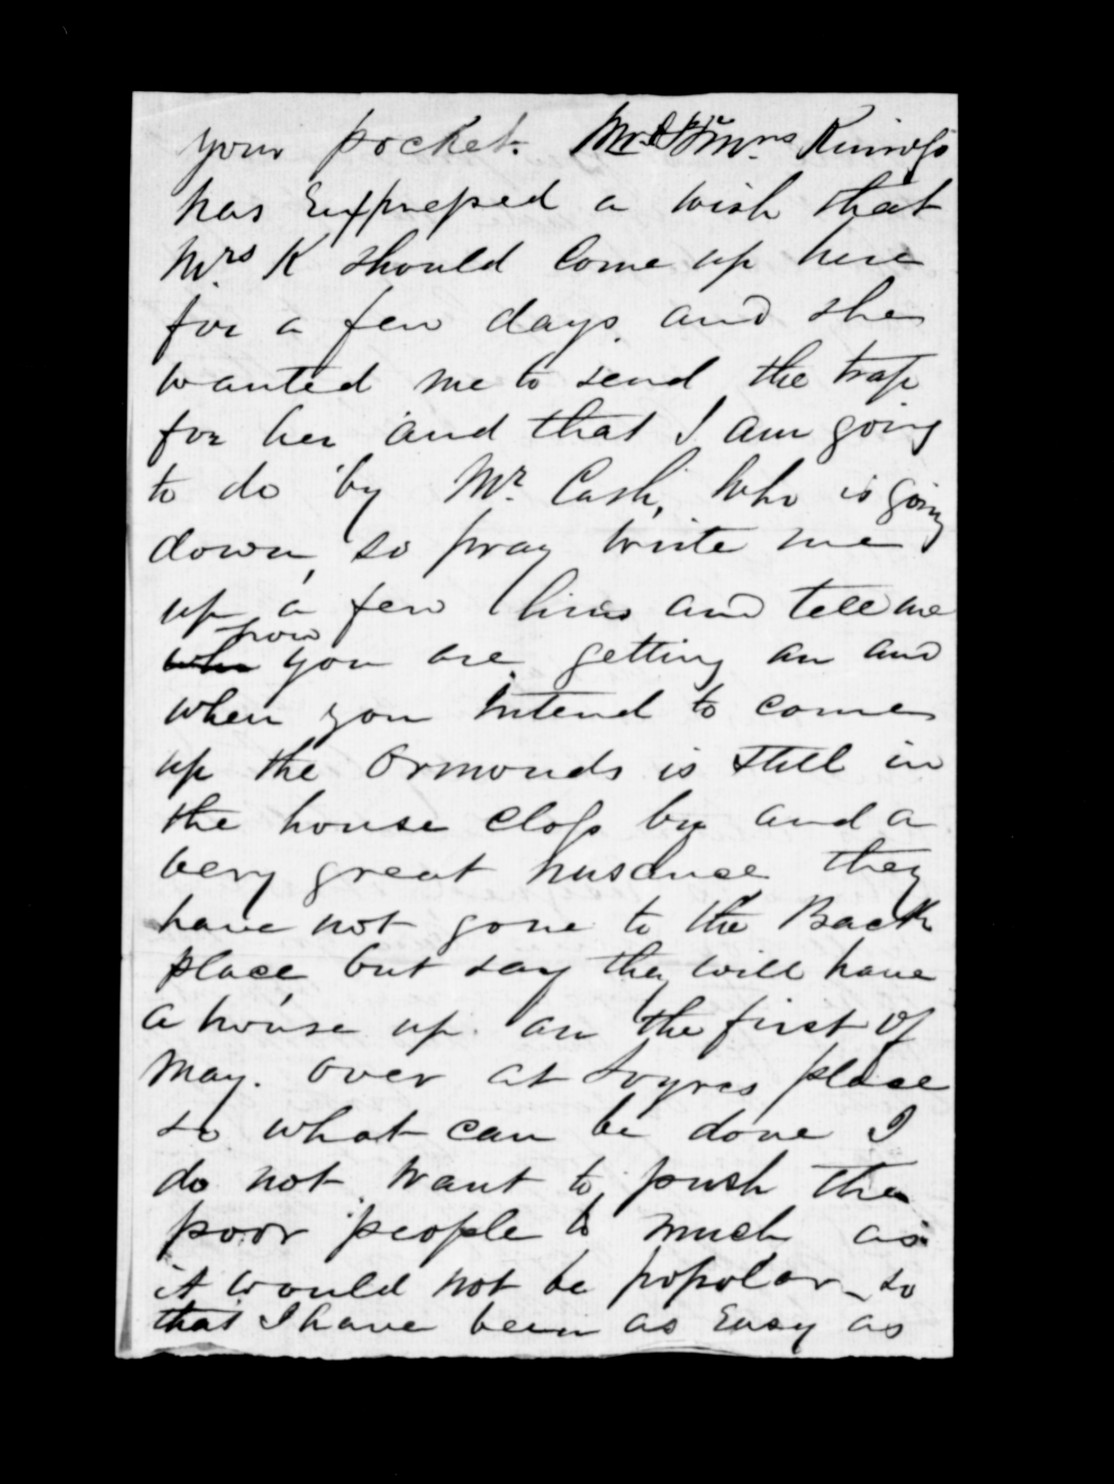 your pocket. Mr & Mrs
has Expressed a wish that
Mrs K should Come up here
for a few days. and she
wanted me to send the trap
for her and that I am going
to do by Mr. Cash, who is going
down, so pray write me
up a few lines and tell me
how you are getting an and
when you intend to come
up the Ormonds is still in
the house Closs by and a
very great nusance they
have not gone to the Back
place, but say they will have
a house up an the first of
May. over at place
so what can be done I
do not want to push the
poor people to much as
it would not be popolar so
that I have been as Easy as